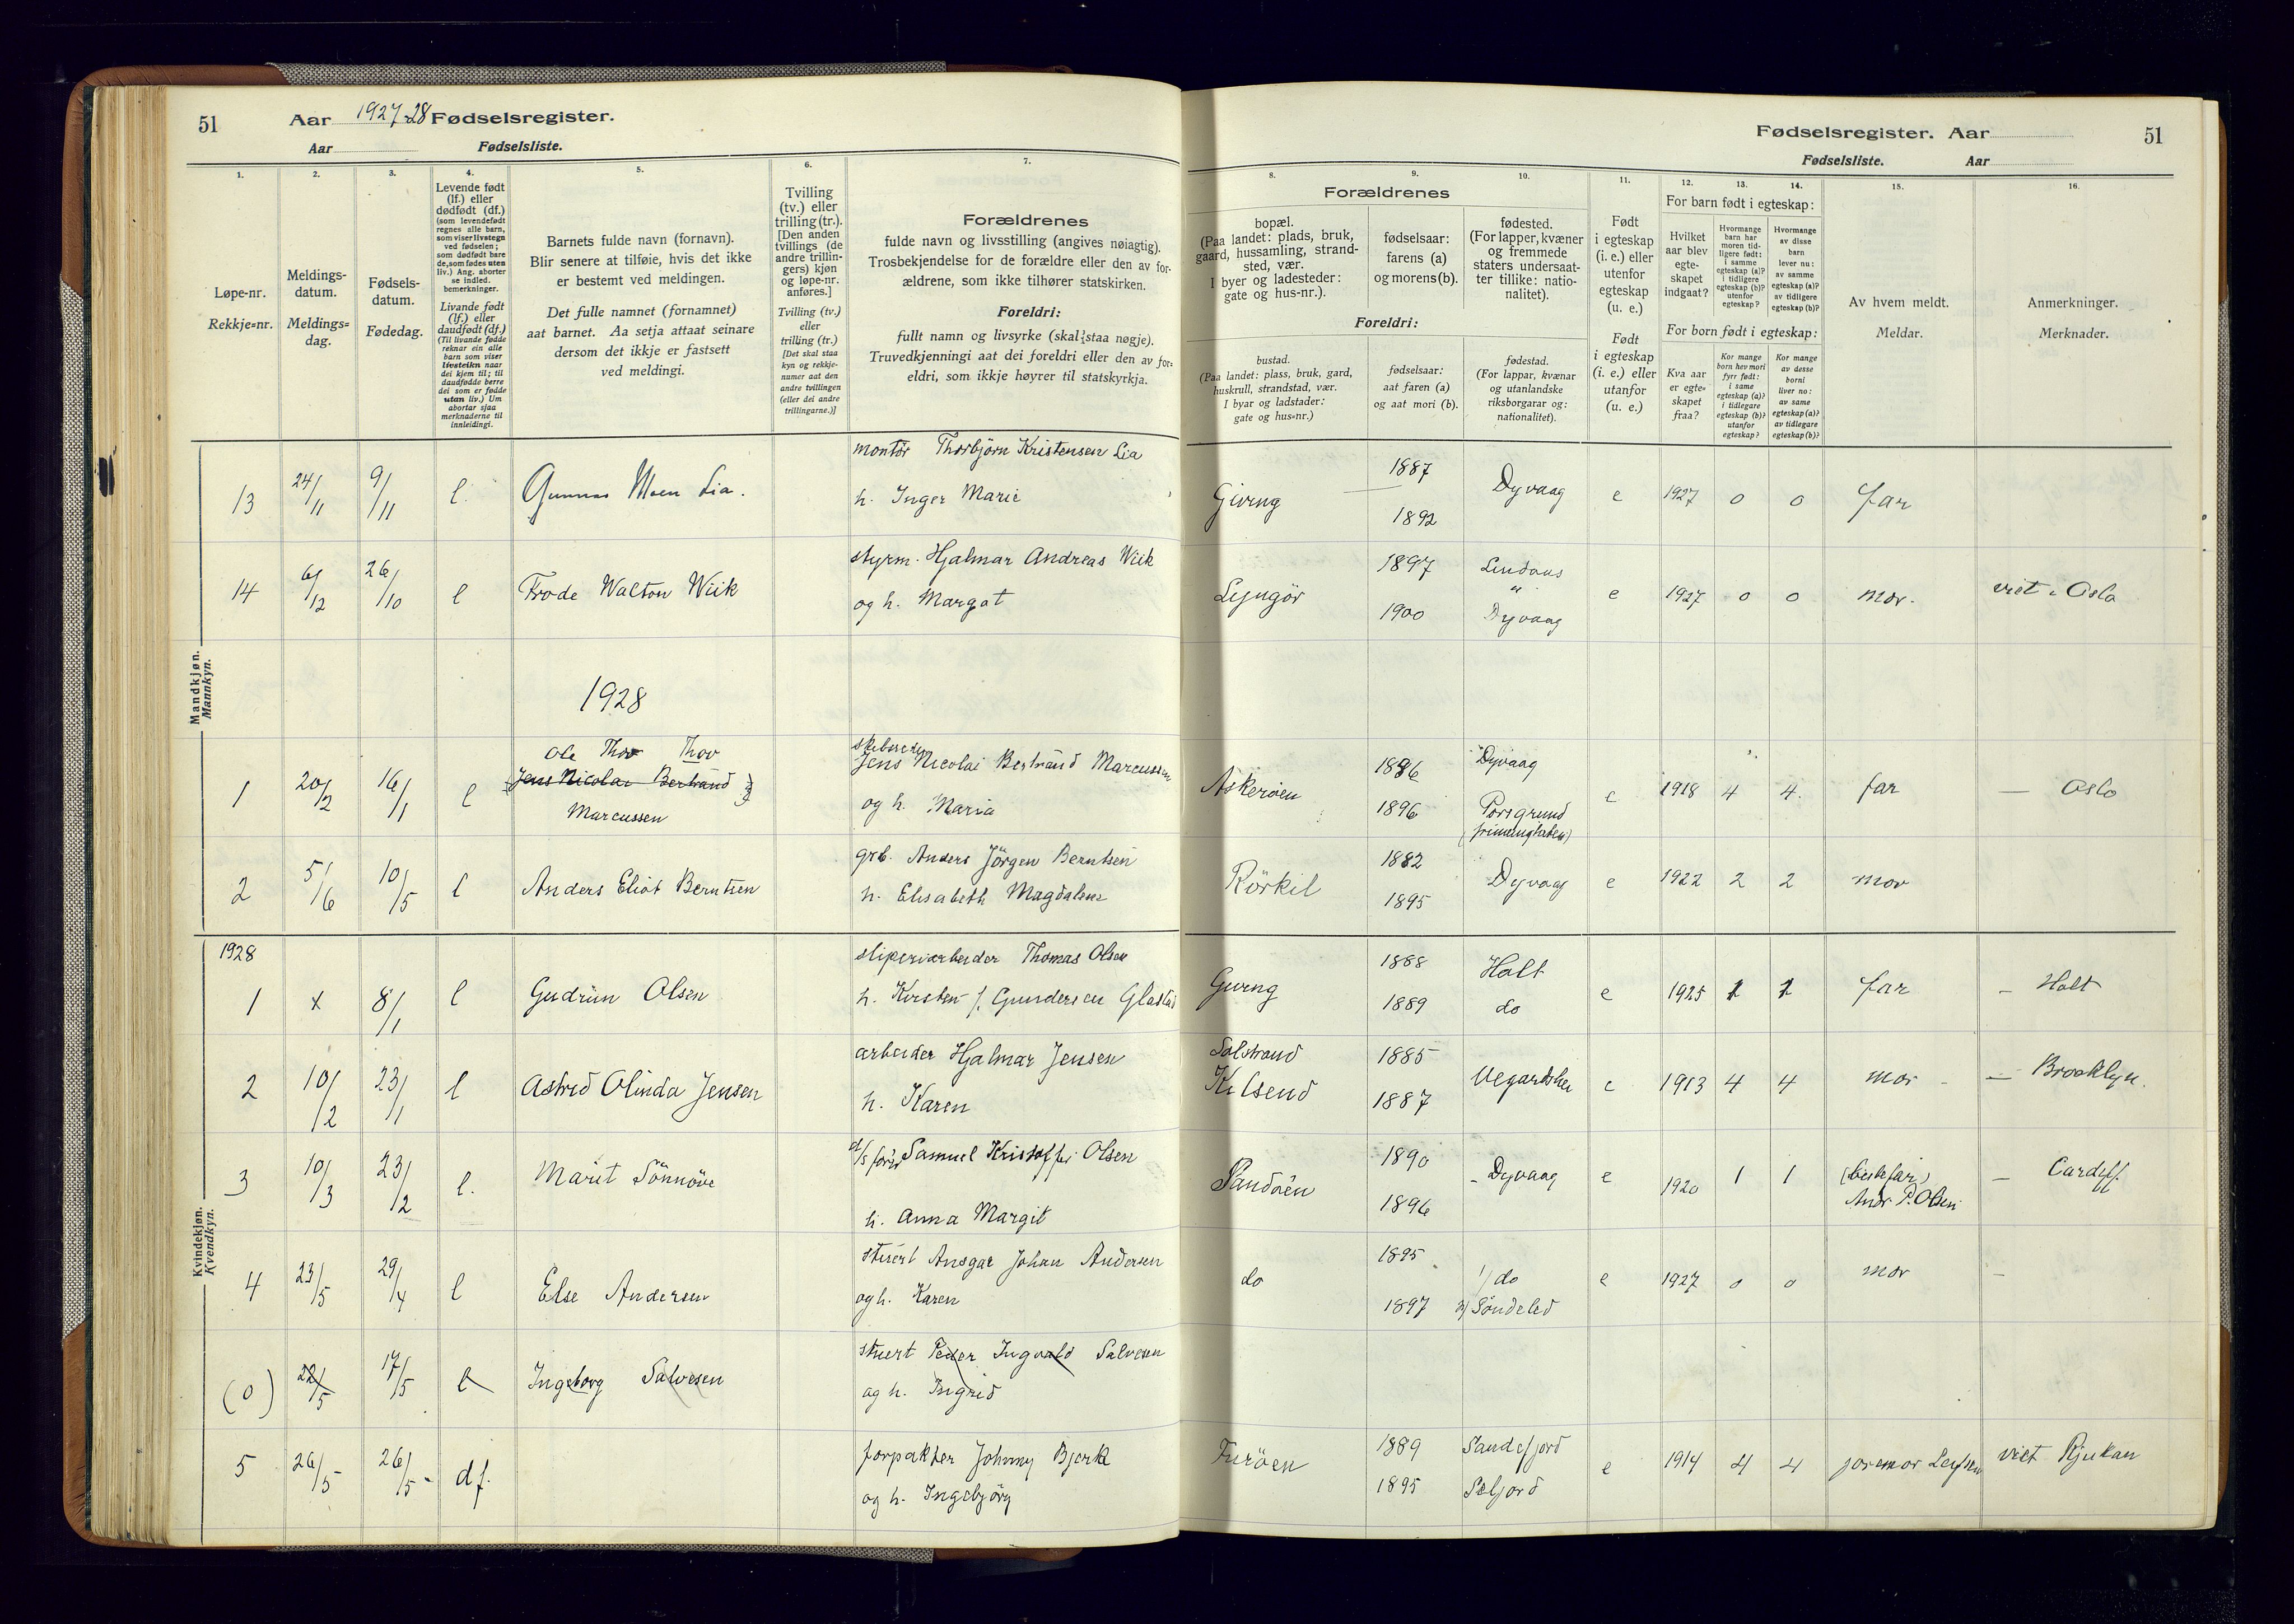 51 Aar 1927-28 Fødselsregister.
Aar Fødselsliste.
Fødselsregister. Aar 51
Fødselsliste. Aar
1. 2. 3. 4. 5. 6. 7.
Løpe-nr.
Rekkje=nr.
Meldings-
datum.
Meldings=
dag.
Fødsels-
datum.
Fødedag.
Levende født
(lf.) eller
dødfødt (df.)
(som levendefødt
regnes alle barn,
som viser livstegn
ved fødselen;
som dødfødt bare
de, som fødes uten
liv.) Ang. aborter
se indled.
bemerkninger.
Livande født
(lf.) eller
daudfødt (df.)
(Til livande fødde
reknar ein alle
barn som viser
livsteikn naar
dei kjem til; til
daudfødde berre
dei som er fødde
utan liv.) Um
abortar sjaa
merknaderne til
innleidingi.
Barnets fulde navn (fornavn).
Blir senere at tilføie, hvis det ikke
er bestemt ved meldingen.
Det fulle namnet (fornamnet)
aat barnet. Aa setja attaat seinare
dersom det ikkje er fastsett
ved meldingi.
Tvilling
(tv.) eller
trilling (tr.).
[Den anden
tvillings (de
andre trillin-
gers) kjøn
og løpe-nr.
anføres.]
Tvilling (tv.)
eller
trilling (tr.)
[Det skal staa
kyn og rekkje-
numer aat den
andre tvillingen
(eller dei andre
trillingarne.)]
Forældrenes
fulde navn og livsstilling (angives nøiagtig).
Trosbekjendelse for de forældre eller den av for-
ældrene, som ikke tilhører statskirken.
Foreldri:
fullt namn og livsyrke (skal staa nøgje).
Truvedkjenningi aat dei foreldri eller den av for-
eldri, som ikkje høyrer til statskyrkja.
8. 9. 10. 11. 12. 13. 14. 15. 16.
Forældrenes
bopæl.
(Paa landet: plads, bruk,
gaard, hussamling, strand-
sted, vær.
I byer og ladesteder:
gate og hus-nr.).
fødselsaar:
farens (a)
og morens (b).
fødested.
(For lapper, kvæner
og fremmede
staters undersaat-
ter tillike: natio-
nalitet).
Foreldri:
bustad.
(Paa landet: plass, bruk, gard,
huskrull, strandstad, vær.
I byar og ladstader:
gate og hus=nr.)
fødselsaar:
aat faren (a)
og aat mori (b).
fødestad.
(For lappar, kvænar
og utanlandske
riksborgarar og:
nationalitet).
Født
i egteskap
(i. e.) eller
utenfor
egteskap
(u. e.)
Født
i egteskap
(i. e.) eller
utanfor
(u. e.)
For barn født i egteskap:
Hvilket
aar blev
egte-
skapet
indgaat?
Hvormange
barn har
moren tid-
ligere født:
i samme
egteskap (a)?
i tidligere
egteskap (b)?
utenfor
egteskap?
Hvormange
av disse
barn
lever nu:
av samme
egteskap (a)?
av tidligere
egteskap (b)?
For born født i egteskap:
Kva aar
er egte=
skapet
fraa?
Kor mange
born hev mori
fyrr født:
i same
egteskap (a)?
i tidlegare
egteskap (b)?
utanfor
egteskap?
Kor mange
av desse
borni
liver no:
av same
egteskap (a)?
av tidlegare
egteskap (b)?
Av hvem meldt.
Meldar.
Anmerkninger.
Merknader.
Mandkjøn.
Mannkyn.
13 24/11 9/11 l. Gunnar Moen Lia. montør Thorbjørn Kristensen Lia
h. Inger Marie
Giving 1887 1892 Dyvaag e 1927 0 0 far
14 6/12 26/10 l Frode Walton Wiik styrm. Hjalmar Andreas Wiik
og h. Margot
Lyngör 1897 1900 Dyvaag e 1927 0 0 mor. Oslo
1928
1 20/2 16/1 l Ole Thor Thor
Jens Nicolai Bertrand
Marcussen
Jens Nicolai Bertrand Marcussen
og h. Maria
Askeröen 1886 1896 Dyvaag
Porsgrund
e 1918 4 4. far — Oslo
2 5/6 10/5 l Anders Eliot Berntsen grb. Anders Jörgen Berntsen
h. Elisabeth Magdalene
Rörkil 1882 1895 Dyvaag e 1922 2 2 mor
Kvindekjøn.
Kvendkyn.
1928
1 x 8/1 l Gudrun Olsen sliperiarbeider Thomas Olsen
h. Kirsten f. Gundersen Glastad
Giving 1888 1889 Holt
do
e 1925 1 1 far — Holt
2 10/2 23/1 l Astrid Olinda Jensen arbeider Hjalmar Jensen
h. Karen
Salstrand
Kilsund
1885 1887 Vegardshei e 1913 4 4 mor — Brooklyn.
3 10/3 23/2 l. Marit Sönnöve d/s förer Samuel Kristoffer Olsen
h. Anna Margit
Sandöen 1890 1896 Dyvaag e 1920 1 1 (bestefar)
Andr P. Olsen
— Cardiff
4 23/5 29/4 l Else Andersen stuert Ansgar Johan Andersen
og h. Karen
do 1895 1897 1/ do
2/ Söndeled
e 1927 0 0 mor —
(0) 22/5 17/5 l Ingeborg Salvesen stuert Peder Ingvald Salvesen
og h. Ingrid
5 26/5 26/5 df. forpakter Johnny Bjerke
og h. Ingebjörg
Furöen 1889 1895 Sandefjord
Seljord
e 1914 4 4 jormor viet Rjukan